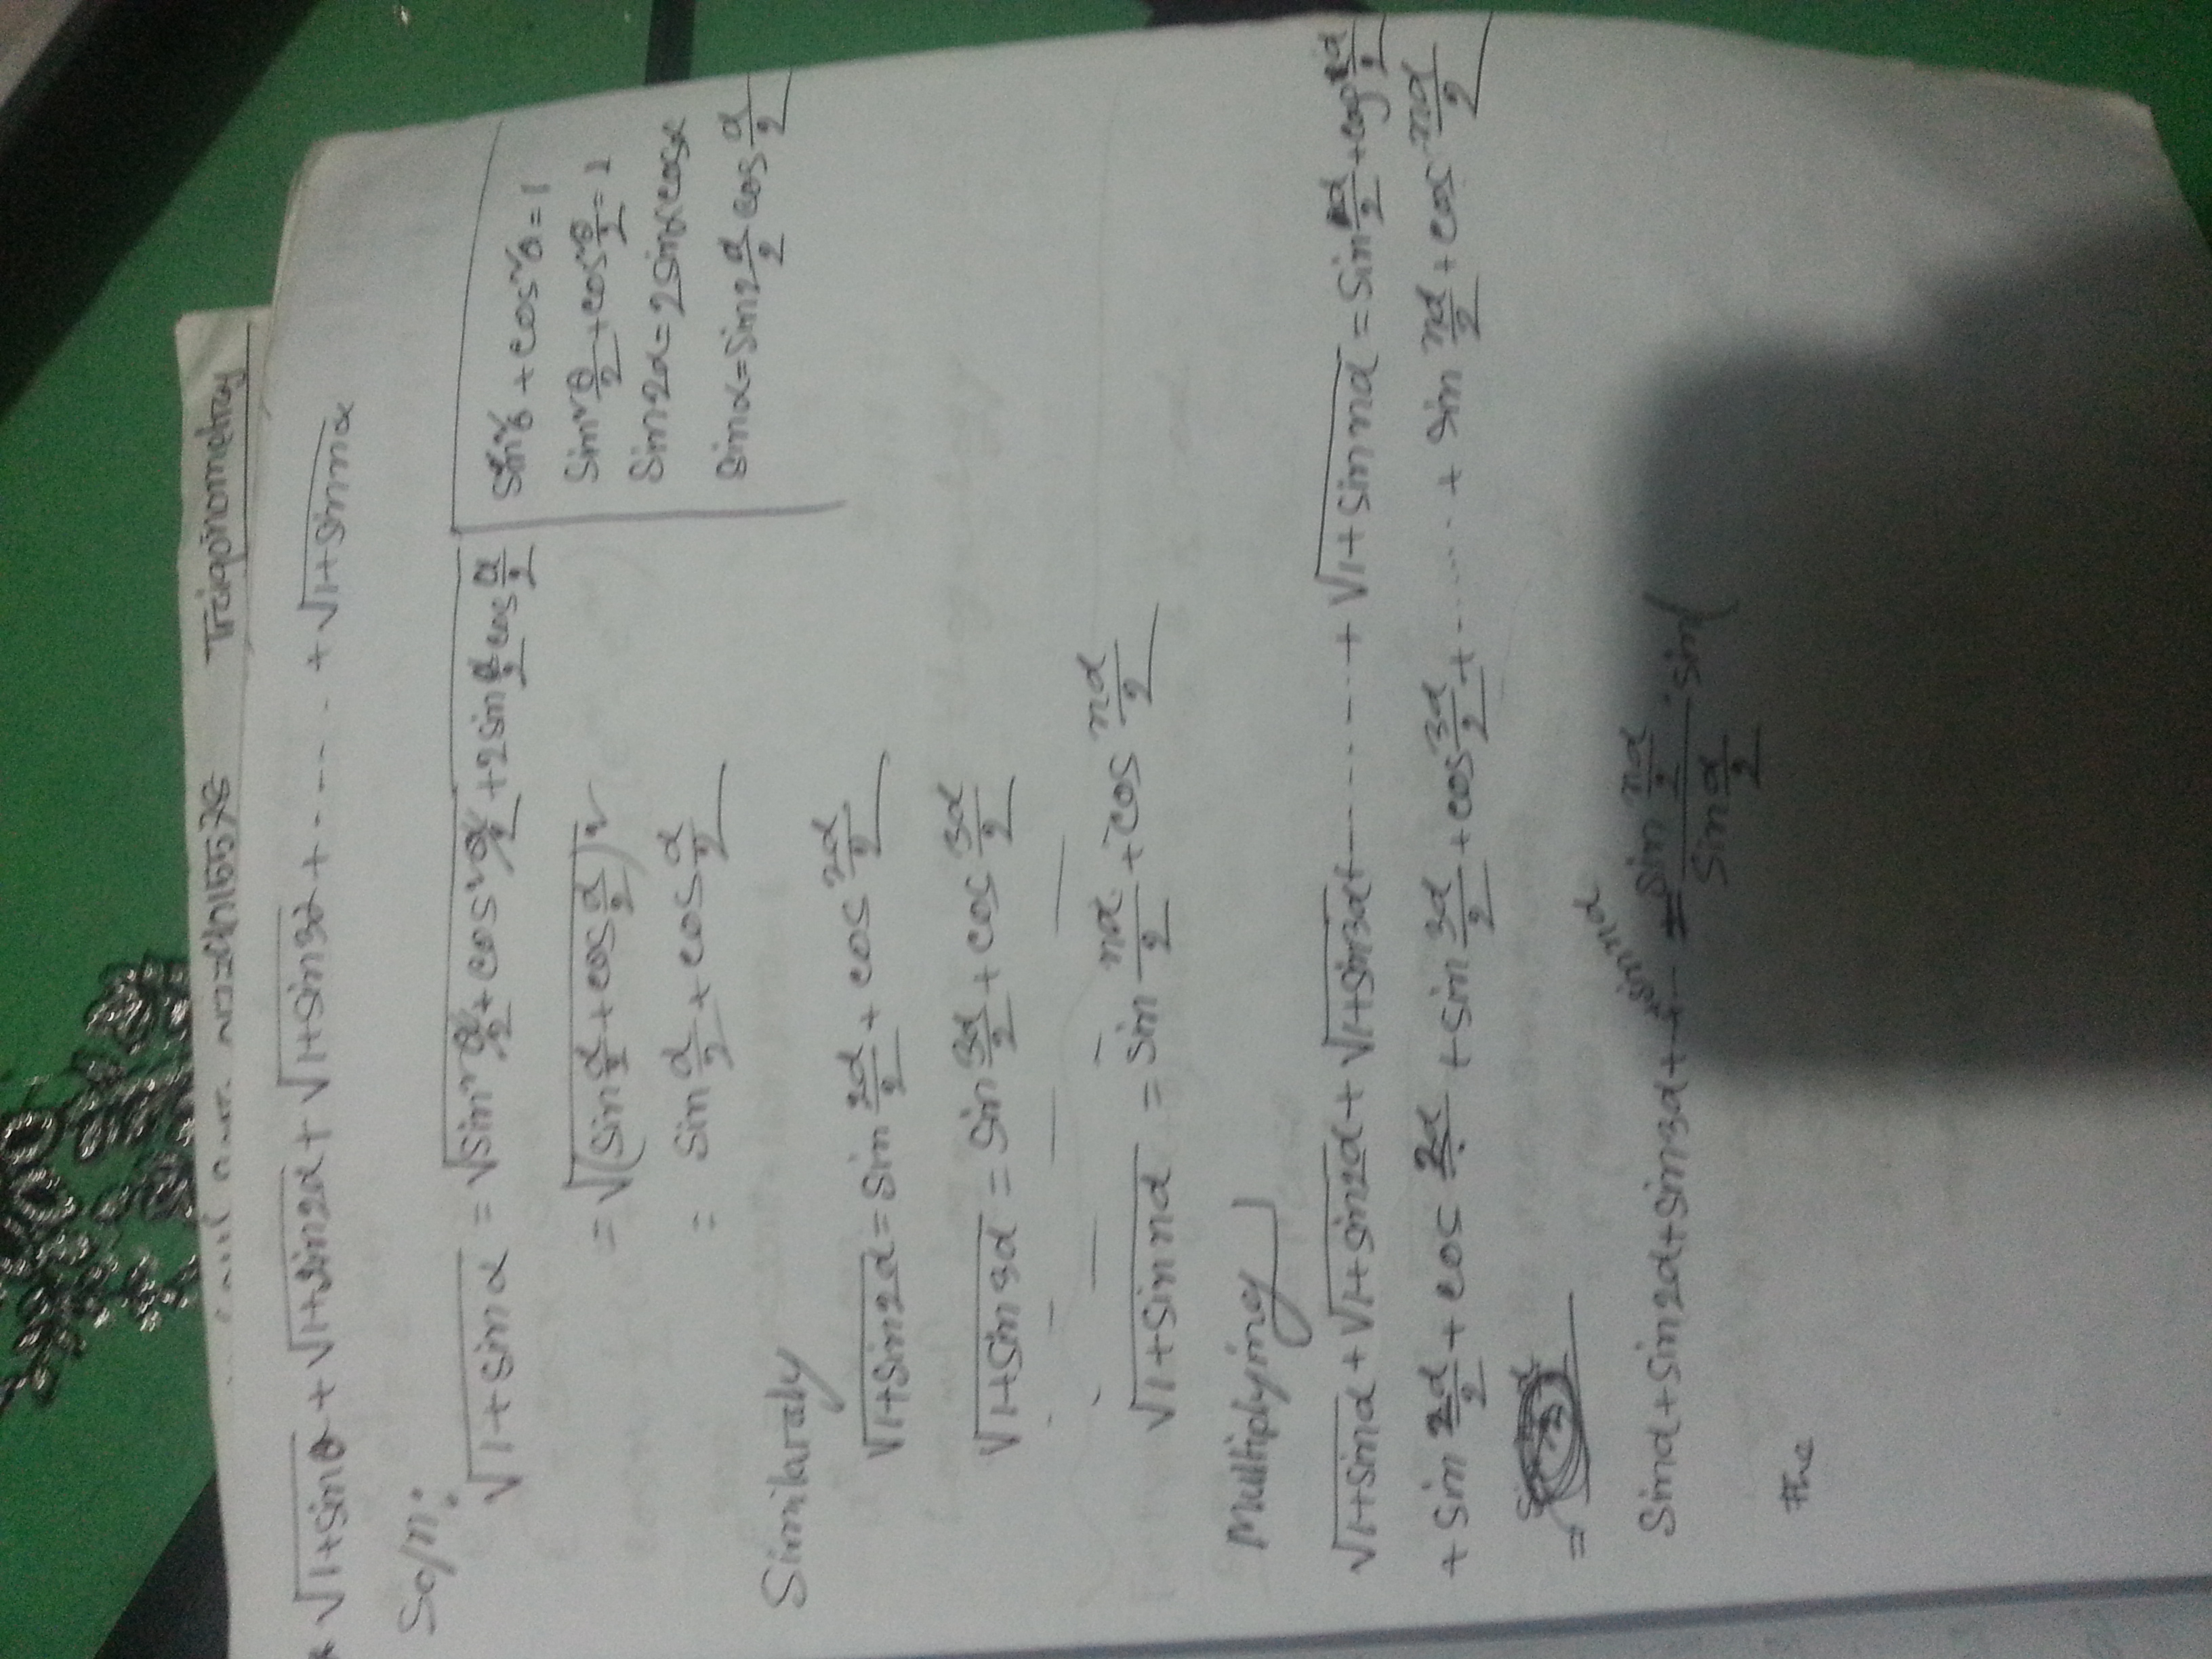 Traigonometray
√1+sinα + √1+sin2α + √1+sin3α + ..... + √1+sinnα
So/n:
√1+sinα = √sin²α/2 + cos²α/2 + 2sinα/2 cosα/2
= √(sinα/2 + cosα/2)²
= sinα/2 + cosα/2
sin²θ + cos²θ = 1
sin²θ/2 + cos²θ/2 = 1
sin2α = 2sinαcosα
sinα = sin2α/2 cosα/2
Similaraly
√1+sin2α = sin2α/2 + cos2α/2
√1+sin3α = sin3α/2 + cos3α/2
√1+sinnα = sin nα/2 + cos nα/2
Multiplying
√1+sinα + √1+sin2α + √1+sin3α + ....... + √1+sinnα = sinα/2 + cosα/2
+ sin2α/2 + cos2α/2 + sin3α/2 + cos3α/2 + ...... + sin nα/2 + cos nα/2
=
sinα + sin2α + sin3α + ... + sinnα = sin nα/2 / sin α/2 · sin(
the